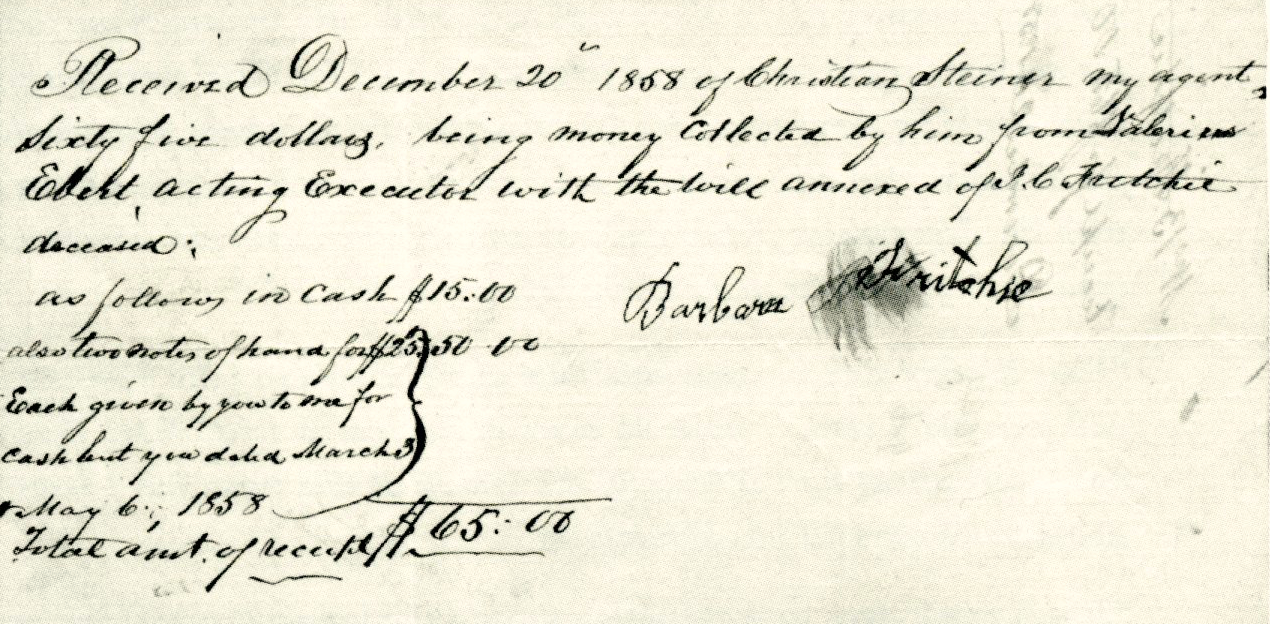 Received December 20" 1858 of Christian Steiner my agent,
Sixty five dollars, being money Collected by him from Valerius
Ebert, acting Executor with the Will annexed of J. C Fritchie
deceased:
Barbara Fritchie
as follows in Cash $15:00
also two notes of hand for $25, 50 00
Each given by you to me for
Cash lent you dated March 3
& May 6; 1858
$65:00
Total amt. of receipt